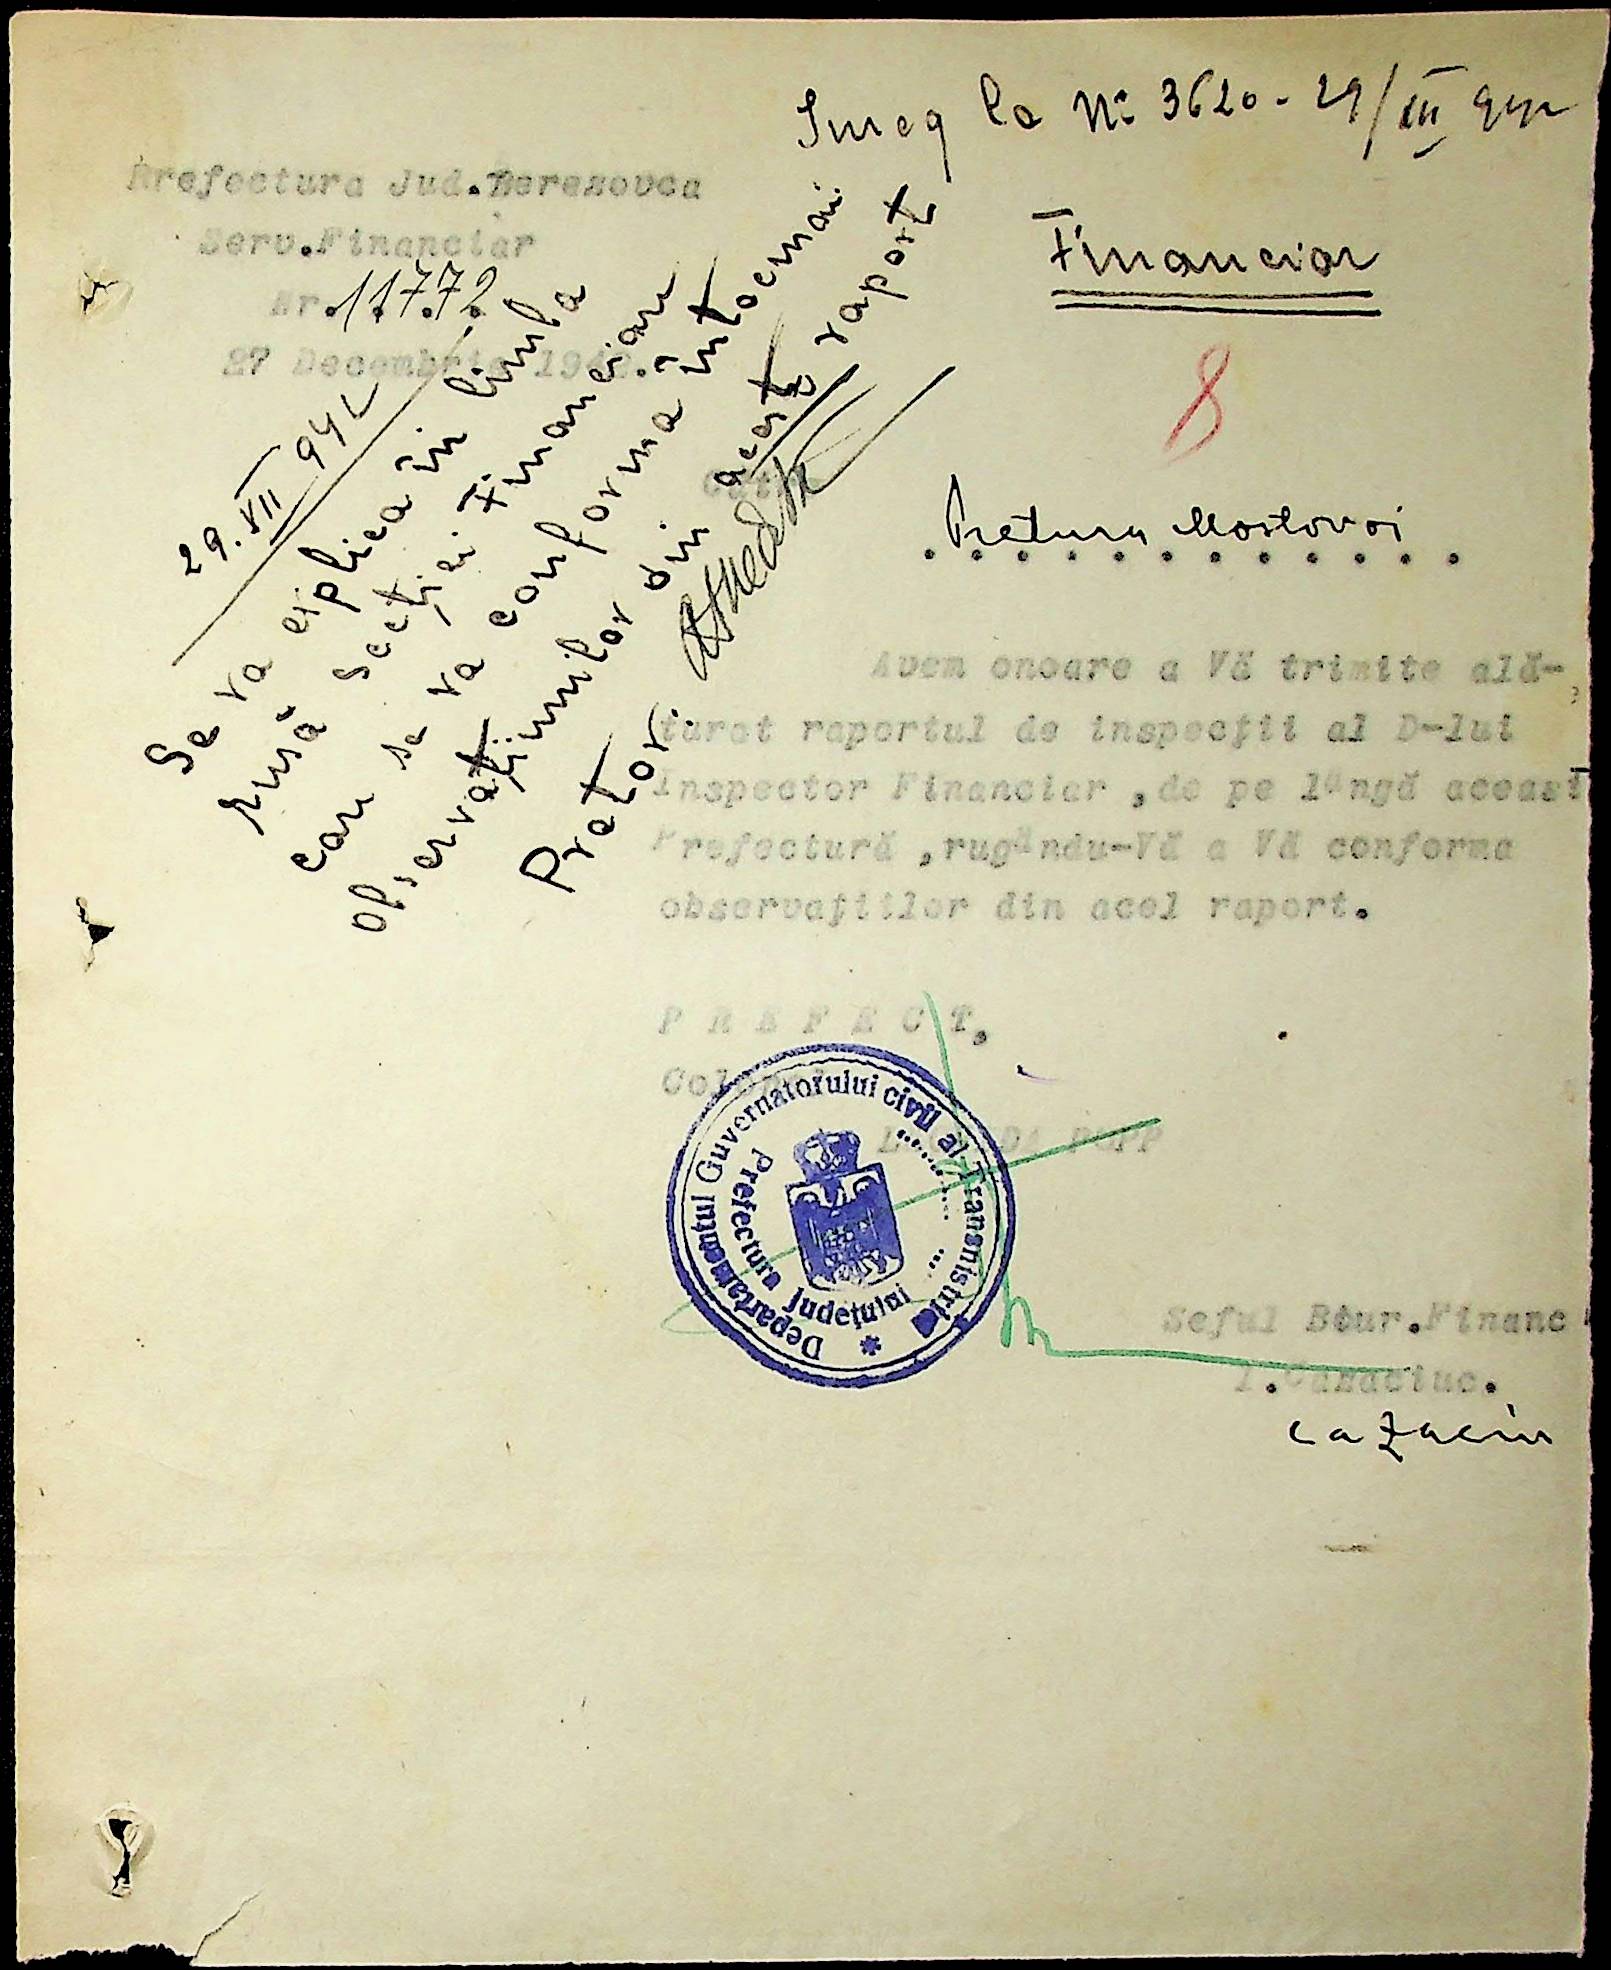 Inreg la Nº 3620 - 29/XII 942
Prefectura Jud.Berezovca
Serv.Financiar
Nr.11.772
27 Decembrie 1942.
Financiar
8
29.XII 942
Se va explica în limba
rusă Secției Financiare
care se va conforma întocmai
observațiunilor din acest raport
Pretor.
Către
Pretura Mostovoi
Avem onoare a Vă trimite ală-
turat raportul de inspecții al D-lui
Inspector Financiar ,de pe lângă aceast
Prefectură ,rugându-Vă a Vă conforma
observațiilor din acel raport.
P R E F E C T,
Colonel
LEONIDA POPP
Departamentul Guvernatorului civil al Transnistriei
Prefectura Județului
Seful Biur.Financ
I.Cazaciuc.
Cazaciuc